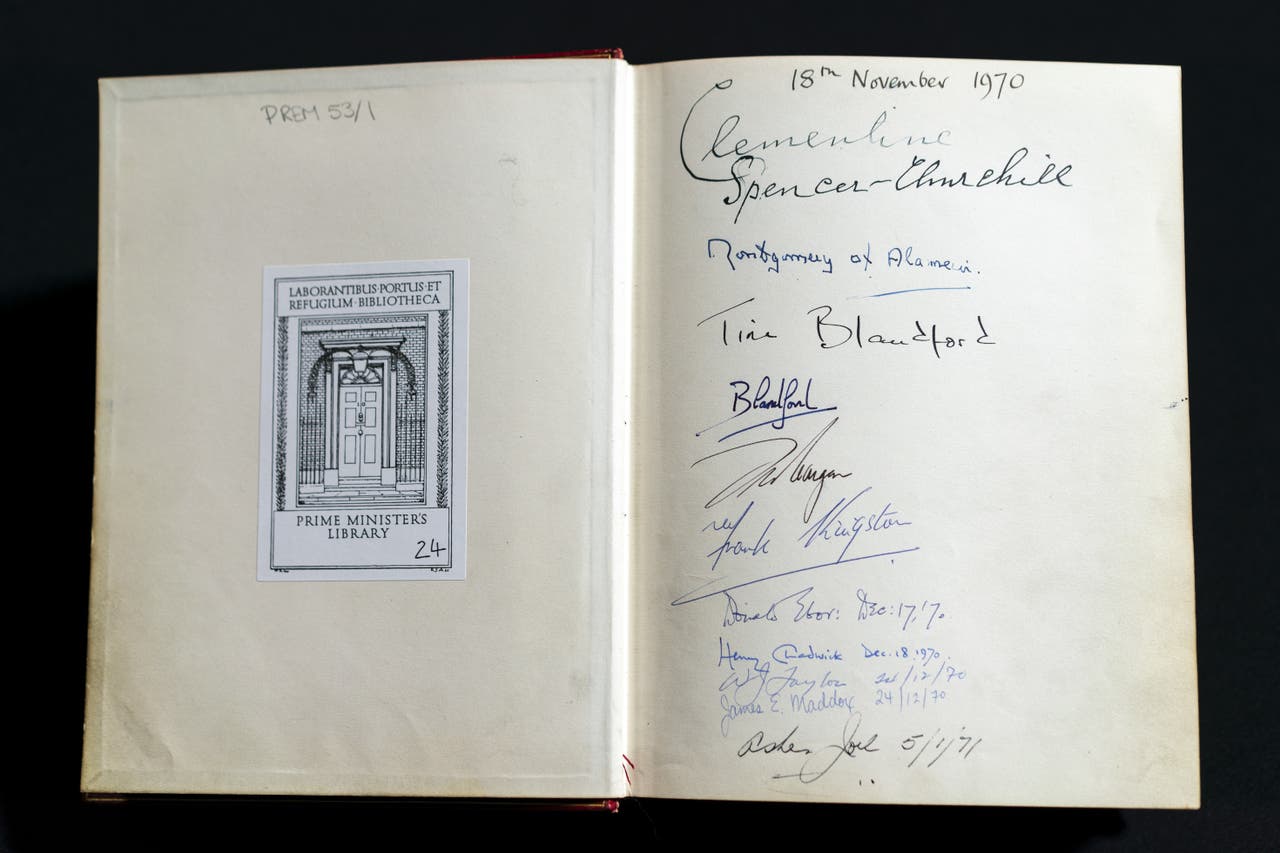 PREM 53/1
LABORANTIBUS·PORTUS·ET
REFUGIUM·BIBLIOTHECA
PRIME MINISTER'S
LIBRARY
24
18th November 1970
Clementine
Spencer-Churchill
Montgomery of Alamein.
Tina Blandford
Blandford
Frank Kingston
Donald Ebor: Dec: 17, '70.
Henry Chadwick Dec. 18. 1970.
Taylor /12/70
James E. Maddox 24/12/70
Asher Joel 5/1/71